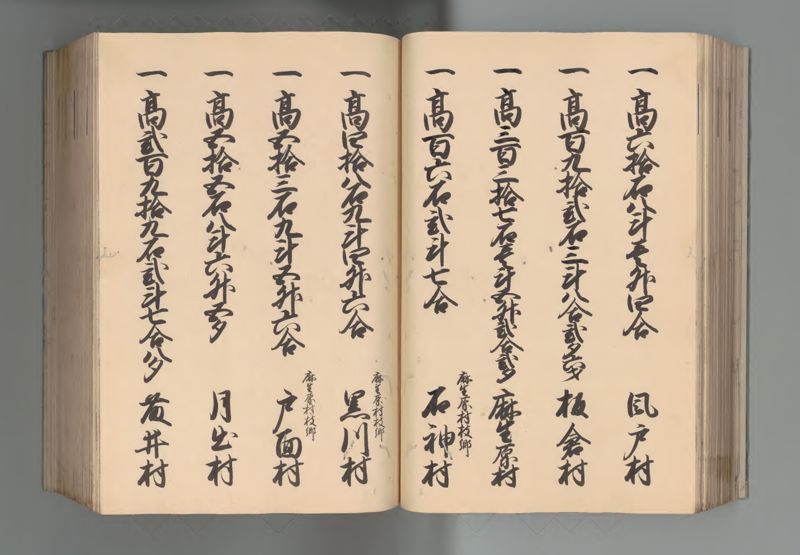 一 高六拾石八斗壱升四合 風戸村
一 高百九拾弐石三斗八合弐夕六才 板倉村
一 高三百二拾七石壱斗五升弐合弐夕 麻生原村
麻生原村枝郷
一 高百六石弐斗七合 石神村
麻生原村枝郷
一 高四拾八石九斗四升六合 黒川村
麻生原村枝郷
一 高五拾三石九斗五升六合 戸面村
一 高五拾五石八斗六升五夕 月出村
一 高弐百九拾九石弐斗七合八夕 井村